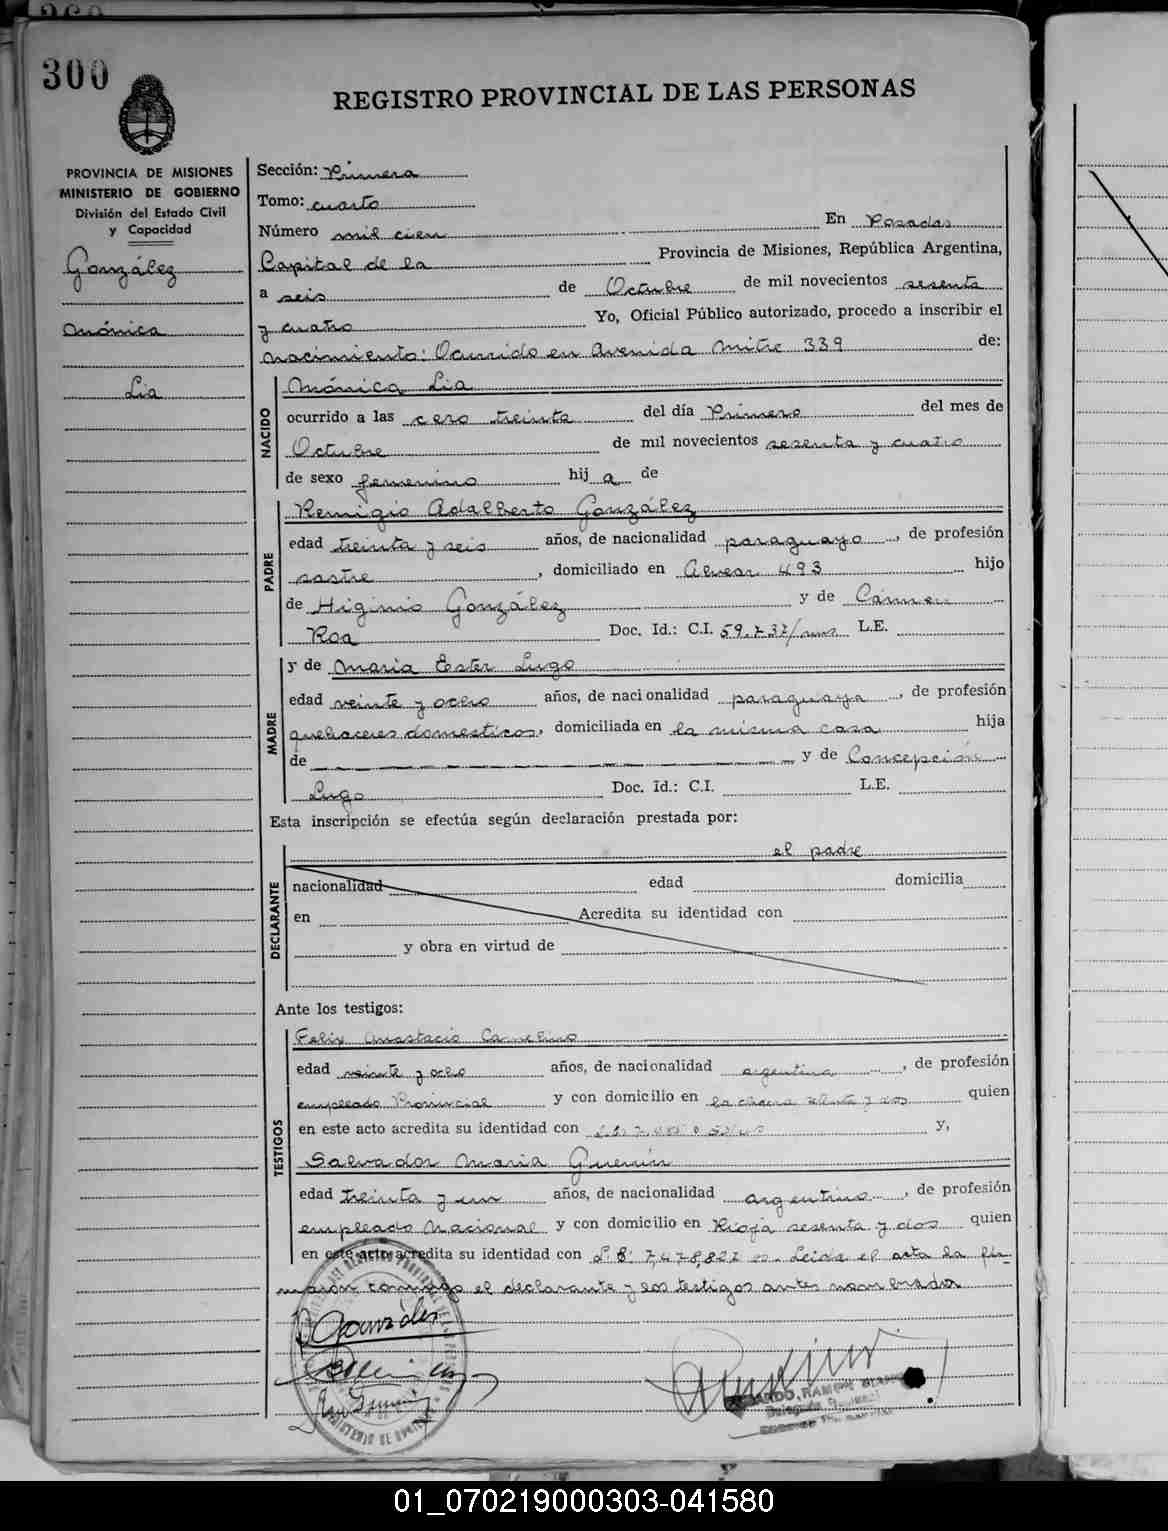 300
REGISTRO PROVINCIAL DE LAS PERSONAS
PROVINCIA DE MISIONES
MINISTERIO DE GOBIERNO
División del Estado Civil
y Capacidad
González
Mónica
Lia
Sección: Primera
Tomo: cuarto
Número mil cien En Posadas
Capital de la Provincia de Misiones, República Argentina,
a seis de Octubre de mil novecientos sesenta
y cuatro Yo, Oficial Público autorizado, procedo a inscribir el
nacimiento: Ocurrido en Avenida Mitre 339 de:
NACIDO
Mónica Lia
ocurrido a las cero treinta del día Primero del mes de
Octubre de mil novecientos sesenta y cuatro
de sexo femenino hij a de
PADRE
Remigio Adalberto González
edad treinta y seis años, de nacionalidad paraguayo, de profesión
sastre, domiciliado en Alvear 493 hijo
de Higinio González y de Carmen
Roa Doc. Id.: C.I. 59.737/mns L.E.
MADRE
y de Maria Ester Lugo
edad veinte y ocho años, de nacionalidad paraguaya, de profesión
quehaceres domesticos, domiciliada en la misma casa hija
de y de Concepción
Lugo Doc. Id.: C.I. L.E.
Esta inscripción se efectúa según declaración prestada por:
el padre
DECLARANTE
nacionalidad edad domicilia
en Acredita su identidad con
y obra en virtud de
Ante los testigos:
TESTIGOS
Felix Anastacio
edad veinte y ocho años, de nacionalidad argentina, de profesión
empleado Provincial y con domicilio en la chacra y dos quien
en este acto acredita su identidad con y,
Salvador Maria
edad treinta y un años, de nacionalidad argentino, de profesión
empleado Nacional y con domicilio en Rioja sesenta y dos quien
en este acto acredita su identidad con Leida el acta la fir-
maron conmigo el declarante y los testigos antes nombrados
González
01_070219000303-041580